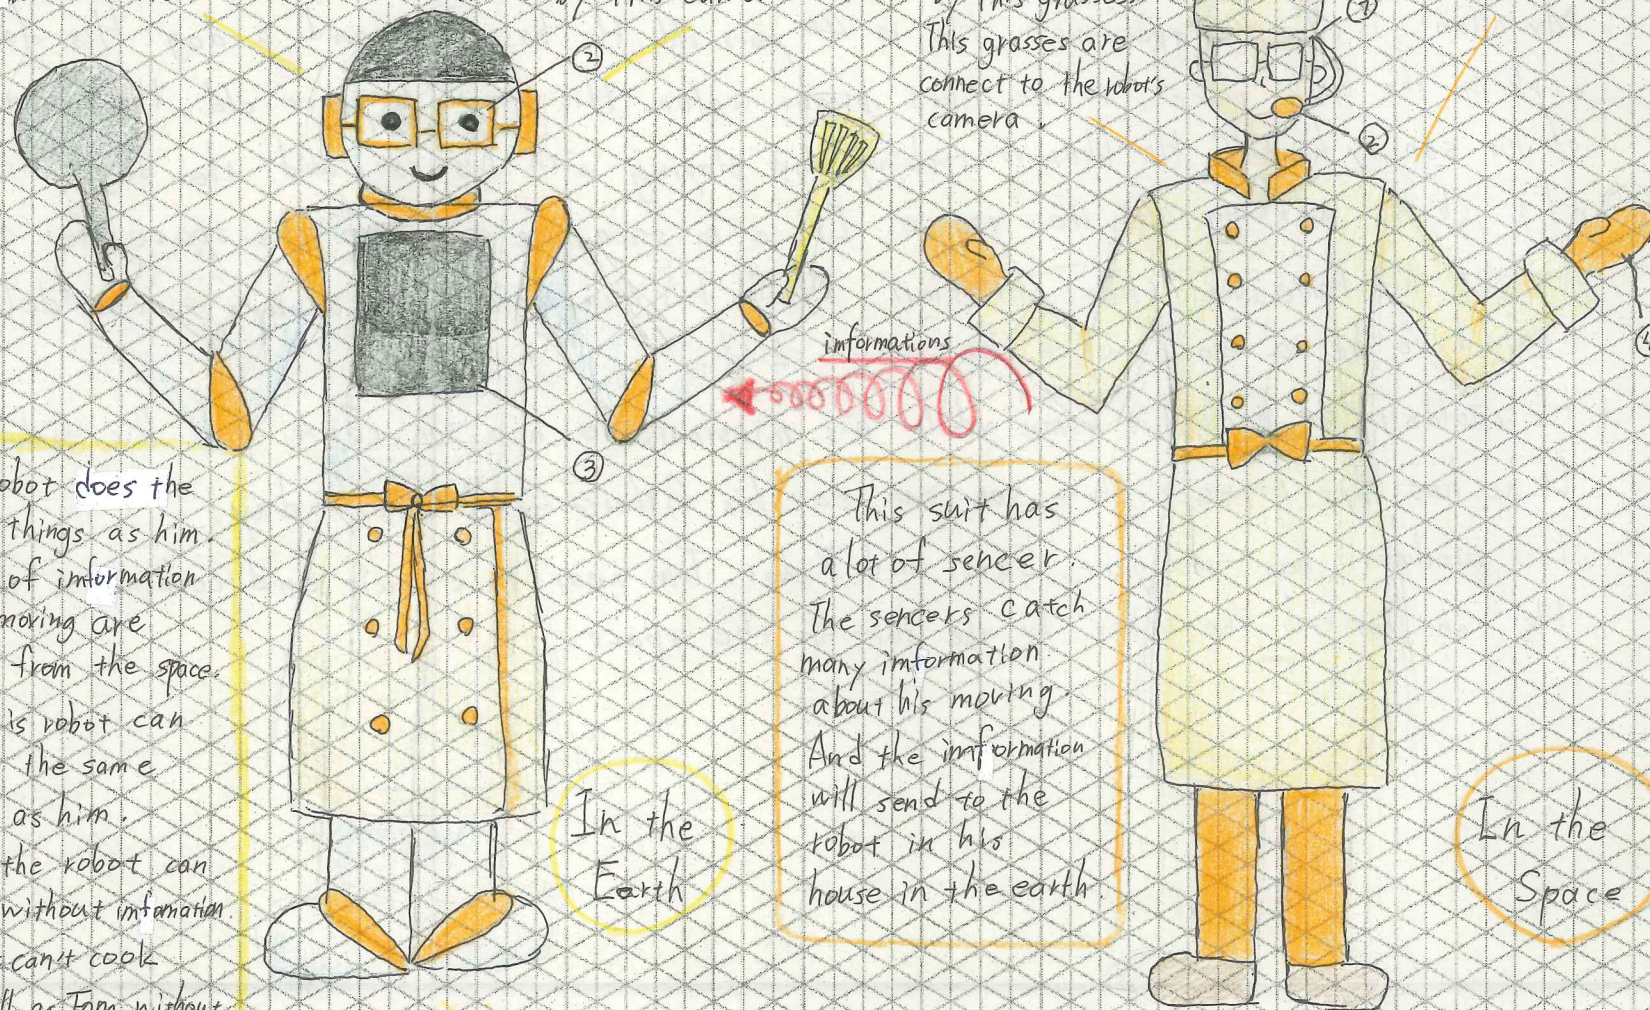 by this grasses
This grasses are
connect to the robot's
camera.
①
②
②
③
informations
obot does the
things as him.
of imformation
moving are
from the space.
is robot can
the same
as him.
the robot can
without imfomation.
can't cook
as Tom without
In the
Earth
This suit has
a lot of sencer.
The sencers catch
many imformation
about his moving.
And the imformation
will send to the
robot in his
house in the earth.
In the
Space